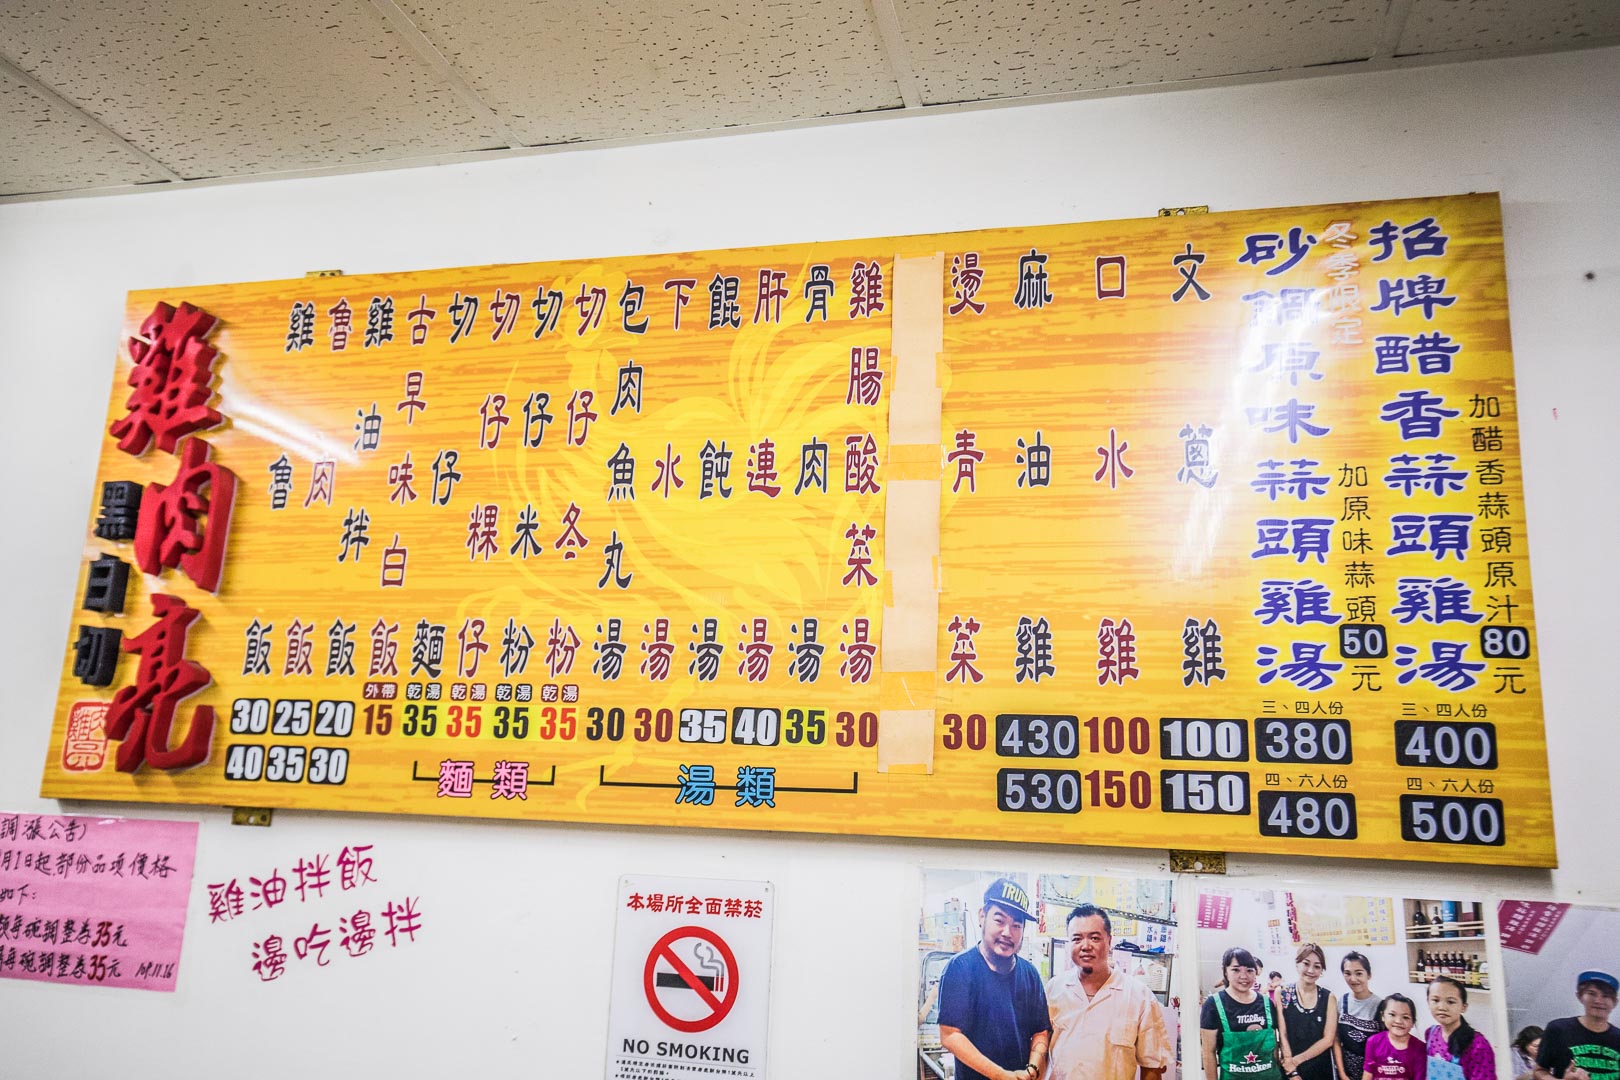 雞肉亮
黑白切
雞魯飯 30 40
魯肉飯 25 35
雞油拌飯 20 30
古早味白飯 外帶 15
切仔麵 乾湯 35
切仔粿仔 乾湯 35
切仔米粉 乾湯 35
切仔冬粉 乾湯 35
麵類
包肉魚丸湯 30
下水湯 30
餛飩湯 35
肝連湯 40
骨肉湯 35
雞腸酸菜湯 30
湯類
燙青菜 30
麻油雞 430 530
口水雞 100 150
文蔥雞 100 150
冬季限定
砂鍋原味蒜頭雞湯
加原味蒜頭50元
三、四人份
380
四、六人份
480
招牌醋香蒜頭雞湯
加醋香蒜頭原汁80元
三、四人份
400
四、六人份
500
調漲公告)
月1日起部份品項價格
如下:
每碗調整為35元
每碗調整為35元 109.11.16
雞油拌飯
邊吃邊拌
本場所全面禁菸
NO SMOKING
TRUN
Milky
Heineken
TAIPEI CITY